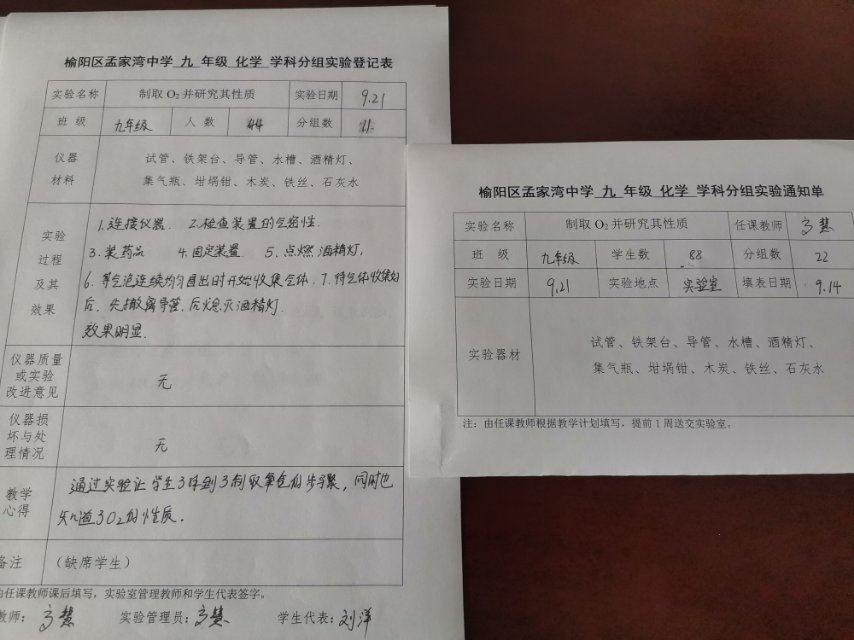 榆阳区孟家湾中学 九 年级 化学 学科分组实验登记表
实验名称 制取 O₂ 并研究其性质 实验日期 9.21
班 级 九年级 人 数 44 分组数 11
仪器 试管、铁架台、导管、水槽、酒精灯、
材料 集气瓶、坩埚钳、木炭、铁丝、石灰水
实验
过程
及其
效果
1.连接仪器. 2.检查装置的气密性.
3.装药品 4.固定装置. 5.点燃酒精灯.
6.等气泡连续均匀冒出时开始收集气体. 7.待气体收集好
后,先撤离导管.后熄灭酒精灯.
效果明显.
仪器质量
或实验
改进意见
无
仪器损
坏与处
理情况
无
教学
心得
通过实验让学生了解到了制取氧气的步骤,同时也
知道了O2的性质.
备注 (缺席学生)
由任课教师课后填写,实验室管理教师和学生代表签字。
教师: 高慧 实验管理员: 高慧 学生代表: 刘洋
榆阳区孟家湾中学 九 年级 化学 学科分组实验通知单
实验名称 制取 O₂ 并研究其性质 任课教师 高慧
班 级 九年级 学生数 88 分组数 22
实验日期 9.21 实验地点 实验室 填表日期 9.14
实验器材
试管、铁架台、导管、水槽、酒精灯、
集气瓶、坩埚钳、木炭、铁丝、石灰水
注:由任课教师根据教学计划填写,提前 1 周送交实验室。